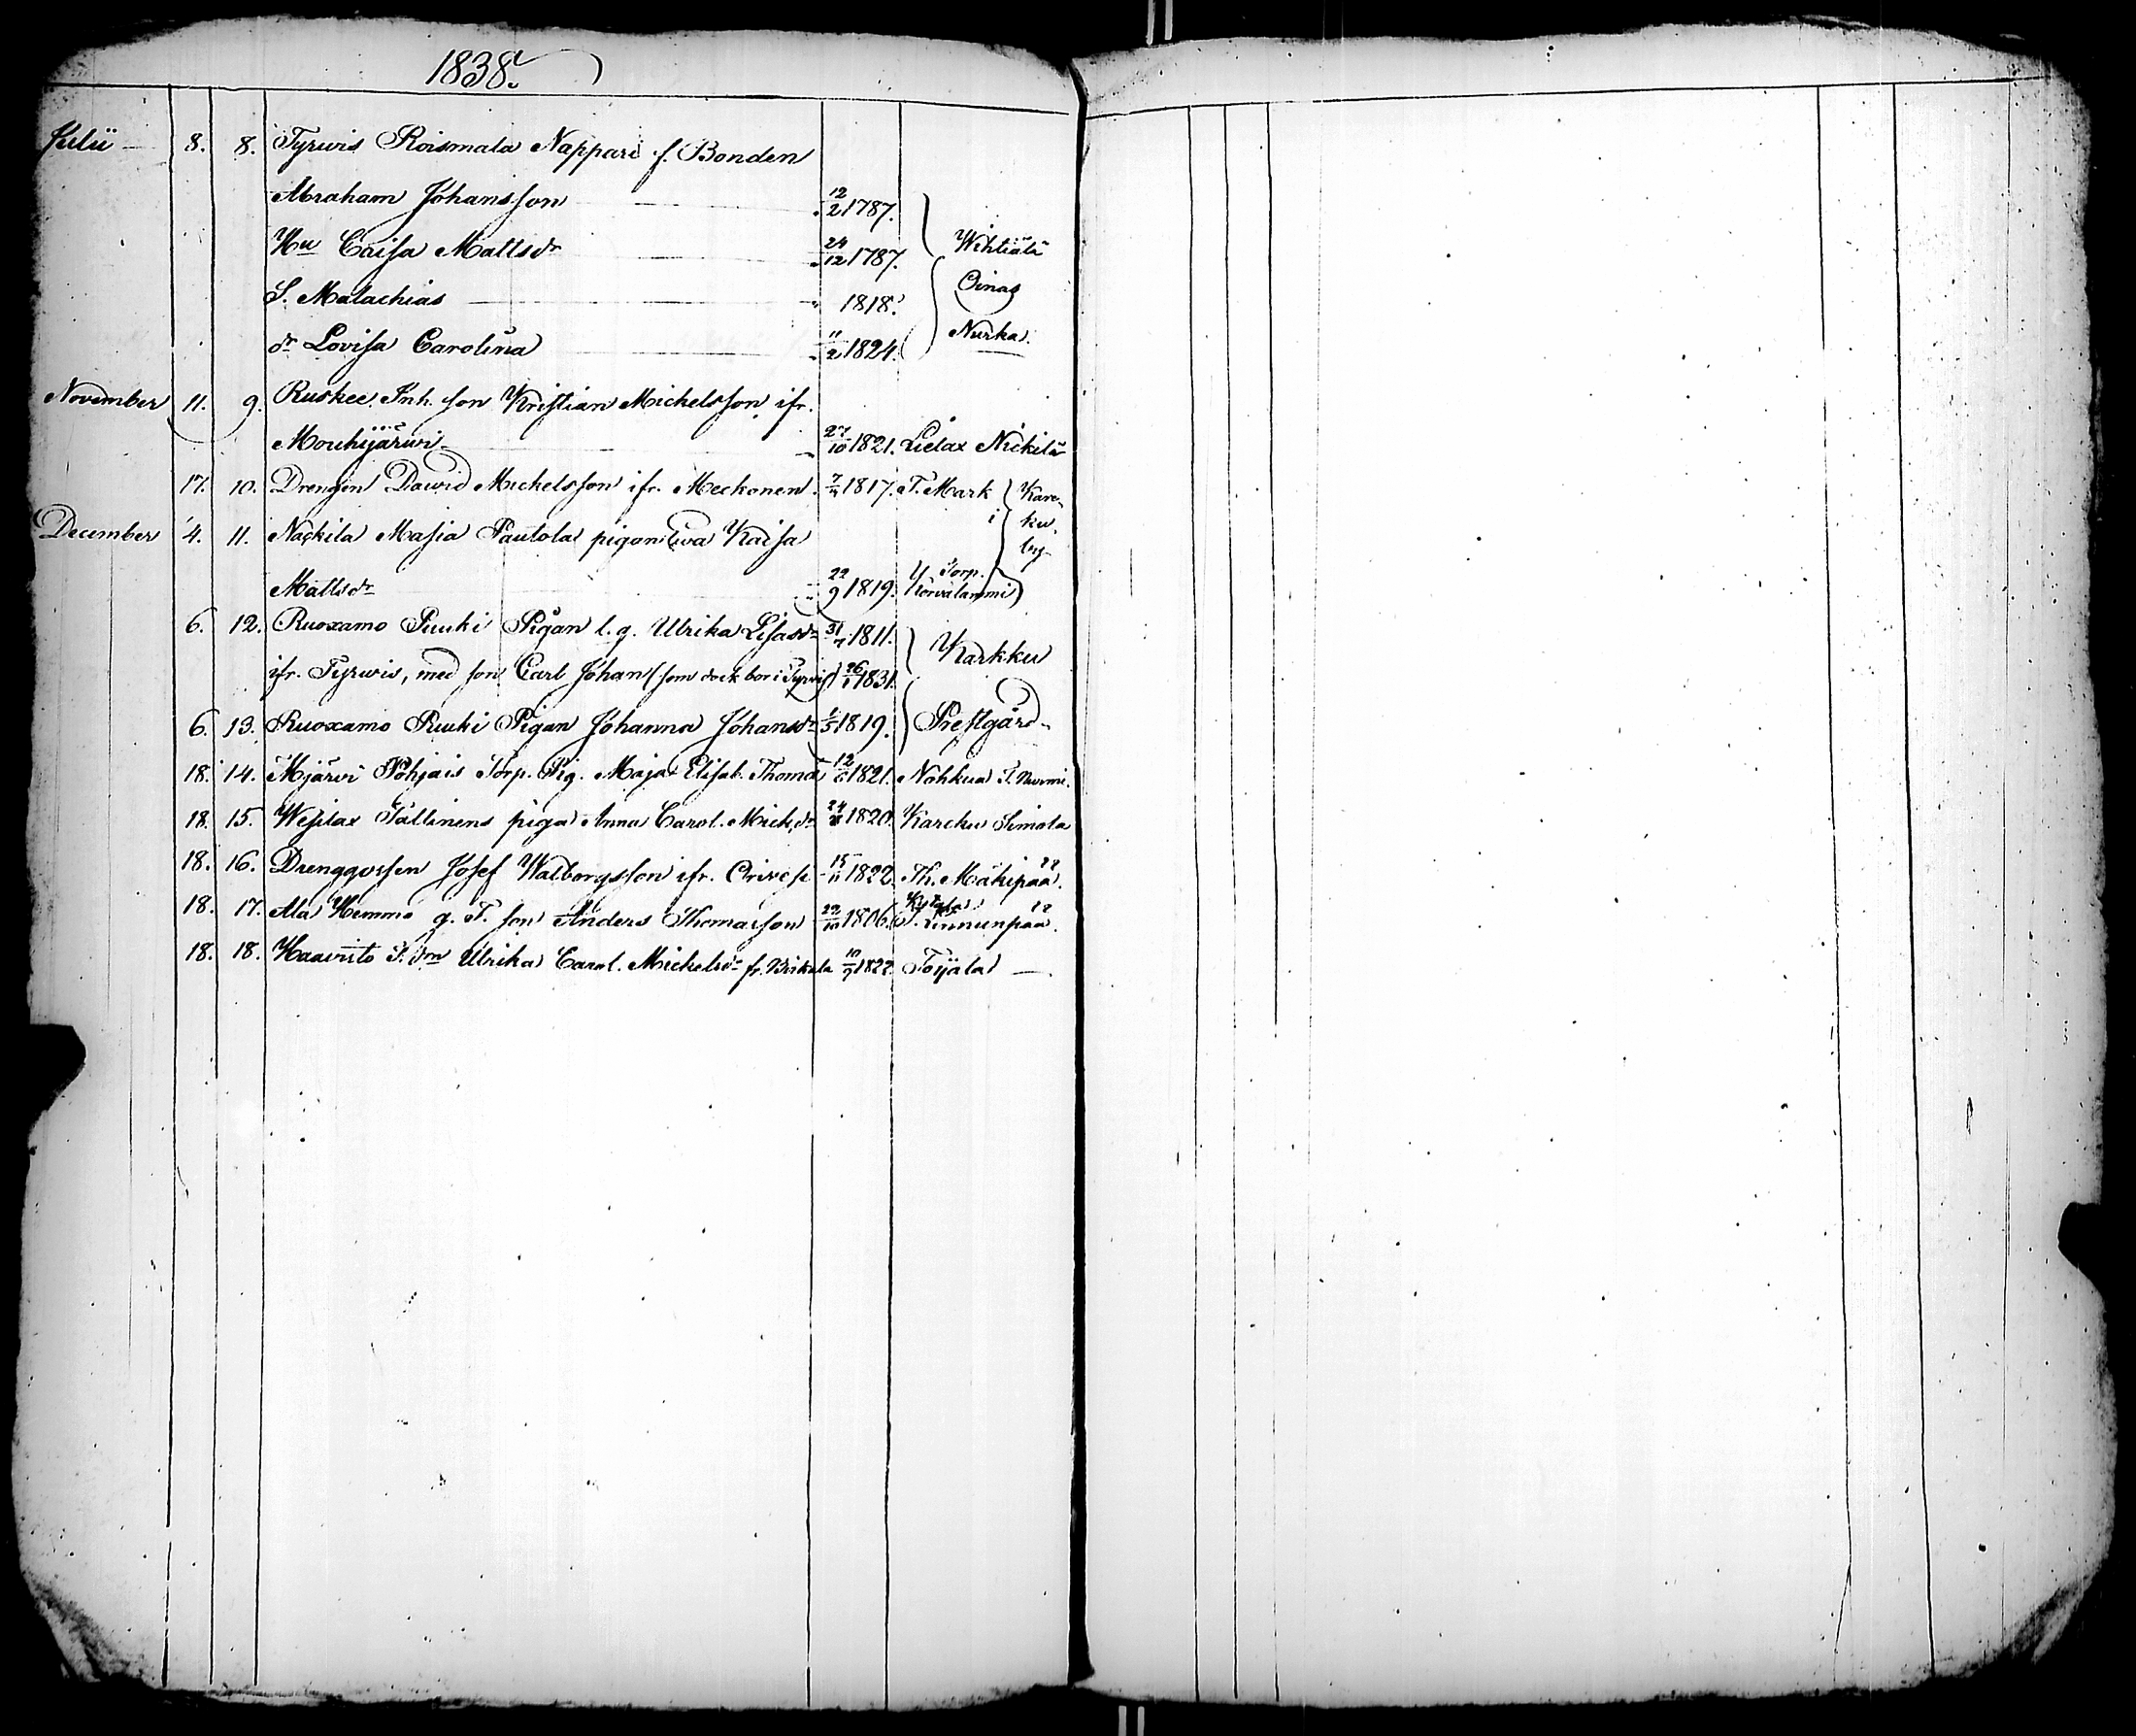 1838.
Julii 8. 8. Tyrwis Roismala Nappari f. Bonden
Abraham Johansson 12/2 1787.
Hu Caisa Mattsdr 24/12 1787. Wihtiälä
S. Malachias 1818. Oinas
dr Lovisa Carolina 11/2 1824. Nurka.
November 11. 9. Ruskee Inh. son Kristian Michelsson ifr.
Mouhijärwi 27/10 1821. Lielax Nickilä
17. 10. Drengen David Michelsson ifr. Meckonen. 1817. T. Mark i Karc-
ku
December 4. 11. Nackila Masia Pautola pigan Eva Kaisa
Mattsdr 22/9 1819. Torp.
Korvalammi
6. 12. Ruoxamo Puuki Pigan l. g. Ulrika Lisasdr 1811. Karkku
ifr. Tyrwis, med son Carl Johan (som dock bor i Tyrwis) 26/1 1831.
6. 13. Ruoxamo Puuki Pigan Johanna Johansdr 1819. Prestgård
18. 14. Mjärvi Pohjais Torp. Pig. Maja Elisab. Thomad 1821. Nohkua T. Nurmi.
18. 15. Wesilax Tallinens piga Anna Carol. Mich.dr 1820. Karcku Simola
18. 16. Drenggossen Josef Walborgsson ifr. Orivesi 15/11 1822. Th. Mäkipää.
18. 17. Ala Hemmo g. T. son Anders Thomasson 22/10 1806. T. Linnunpää.
18. 18. Haavisto T. drn Ulrika Carol. Michelsdr fr. Birkala 10/9 1822. Toijala